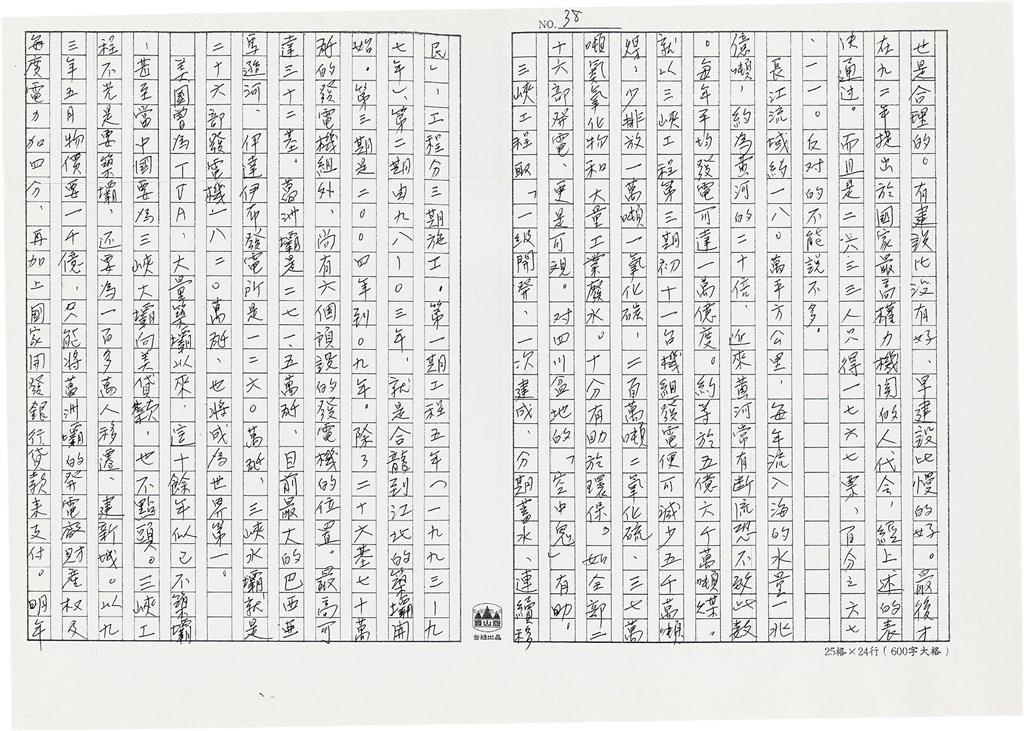 NO. 38
世是合理的。有建設比沒有好、早建設比慢的好。最後才
在九二年提出於國家最高權力機関的人代会，經上述的表
決通过。而且是二六三三人只得一七六七票，百分之六七
、一一。反对的不能說不多。
長江流域約一八〇萬平方公里，每年流入海的水量一兆
億噸，約為黃河的二十倍，近來黃河常有斷流恐不破此数
。每年平均發電可達一萬億度。約等於五億六千萬噸煤。
就以三峽工程第三期初十一台機組發電便可減少五千萬噸
煤，少排放一萬噸一氧化碳，二百萬噸二氧化硫、三七萬
噸氮氧化物和大量工業廢水。十分有助於環保。如全部二
十六部発電、更是可观。对四川盆地的「空中鬼」有助。
三峽工程取「一級開発、一次建成、分期蓄水、連續移
民」，工程分三期施工。第一期工程五年（一九九三—九
七年）第二期由九八—〇三年，就是合龍到江北的築壩開
始。第三期是二〇〇四年到〇九年。除了二十六基七十萬
瓩的發電機組外，尚有六個預設的發電機的位置。最高可
達三十二基。葛洲壩是二七一、五萬瓩、目前最大的巴西亜
馬遜河、伊達伊布發電所是一二六〇萬瓩，三峽水壩就是
二十六部發電機一八二〇萬瓩，也將成為世界第一。
美國曾為TVA，大量築壩以來，這十餘年似已不築壩
，甚至當中國要為三峽大壩向美貸款，也不點頭。三峽工
程不光是要築壩，还要為一百多萬人移遷、建新城。以九
三年五月物價要一千億，只能將葛洲壩的発電廠財產权及
每度電力加四分，再加上國家開發銀行貸款來支付。明年
25格×24行(600字大格)